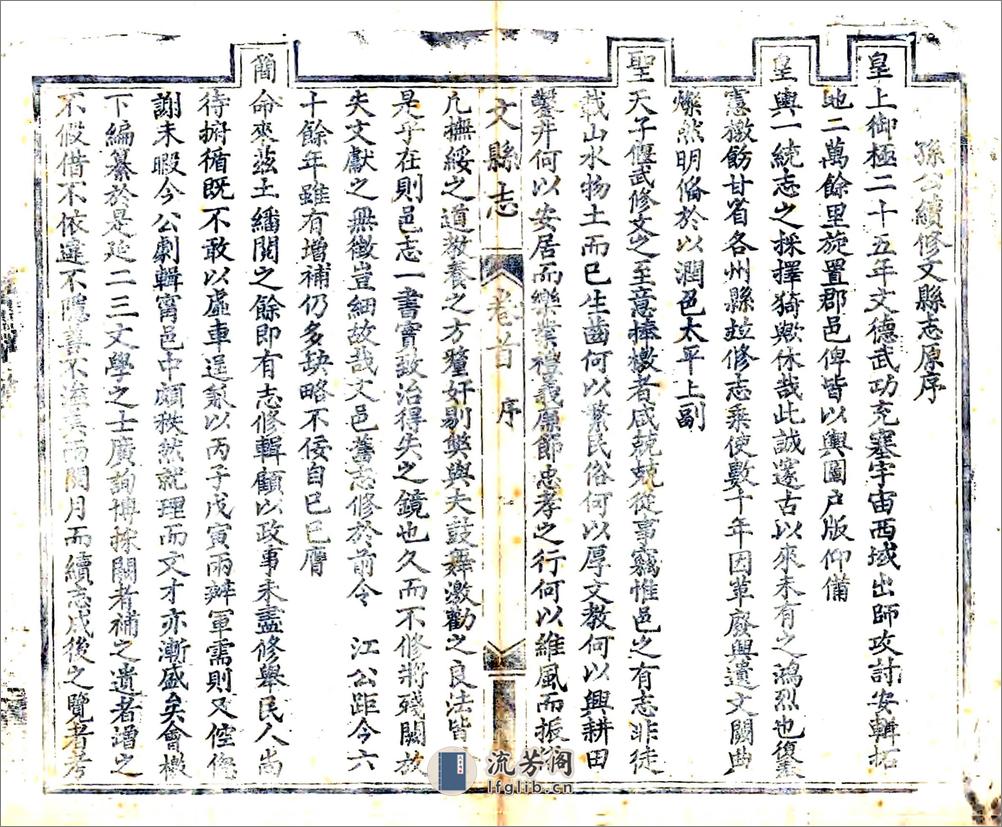 孫公續修文縣志原序
皇上御極二十五年文德武功充塞宇宙西域出師攻討安輯拓
地二萬餘里旋置郡邑俾皆以輿圖戶版仰備
皇輿一統志之採擇猗歟休哉此誠邃古以來未有之鴻烈也復蒙
憲檄飭甘省各州縣竝修志乘使數千年因革廢興遺文闕典
燦然明俻於以潤邑太平上副
聖天子偃武修文之至意捧檄者咸兢兢從事竊惟邑之有志非徒
載山水物土而已生齒何以繁民俗何以厚文教何以興耕田
鑿井何以安居而樂業禮義廉節忠孝之行何以維風而振
文縣志
卷首
序
凡撫綏之道教養之方釐奸剔與夫鼓舞激勸之良法皆
是乎在則邑志一書實政治得失之鏡也久而不修將殘闕放
失文獻之無徵豈細故哉文邑舊志修於前令 江公距今六
十餘年雖有增補仍多缺略不佞自己巳膺
簡命來茲土繙閱之餘即有志修輯顧以政事未盡修舉民人尚
待拊循既不敢以虛車逞以丙子戊寅兩辦軍需則又倥傯
謝未暇今公劇輯甯邑中頗秩然就理而文才亦漸盛矣會檄
下編纂於是延二三文學之士廣詢博採闕者補之遺者增之
不假借不依違不隱善不溢美兩閱月而續志成後之覽者考
流芳阁
lfglib.cn